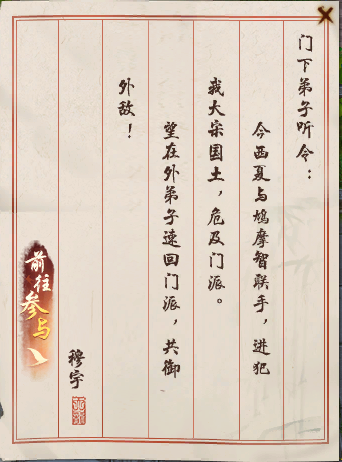 门下弟子听令：
今西夏与鸠摩智联手，进犯
我大宗国土，危及门派。
望在外弟子速回门派，共御
外敌！
穆宇
前往
参与